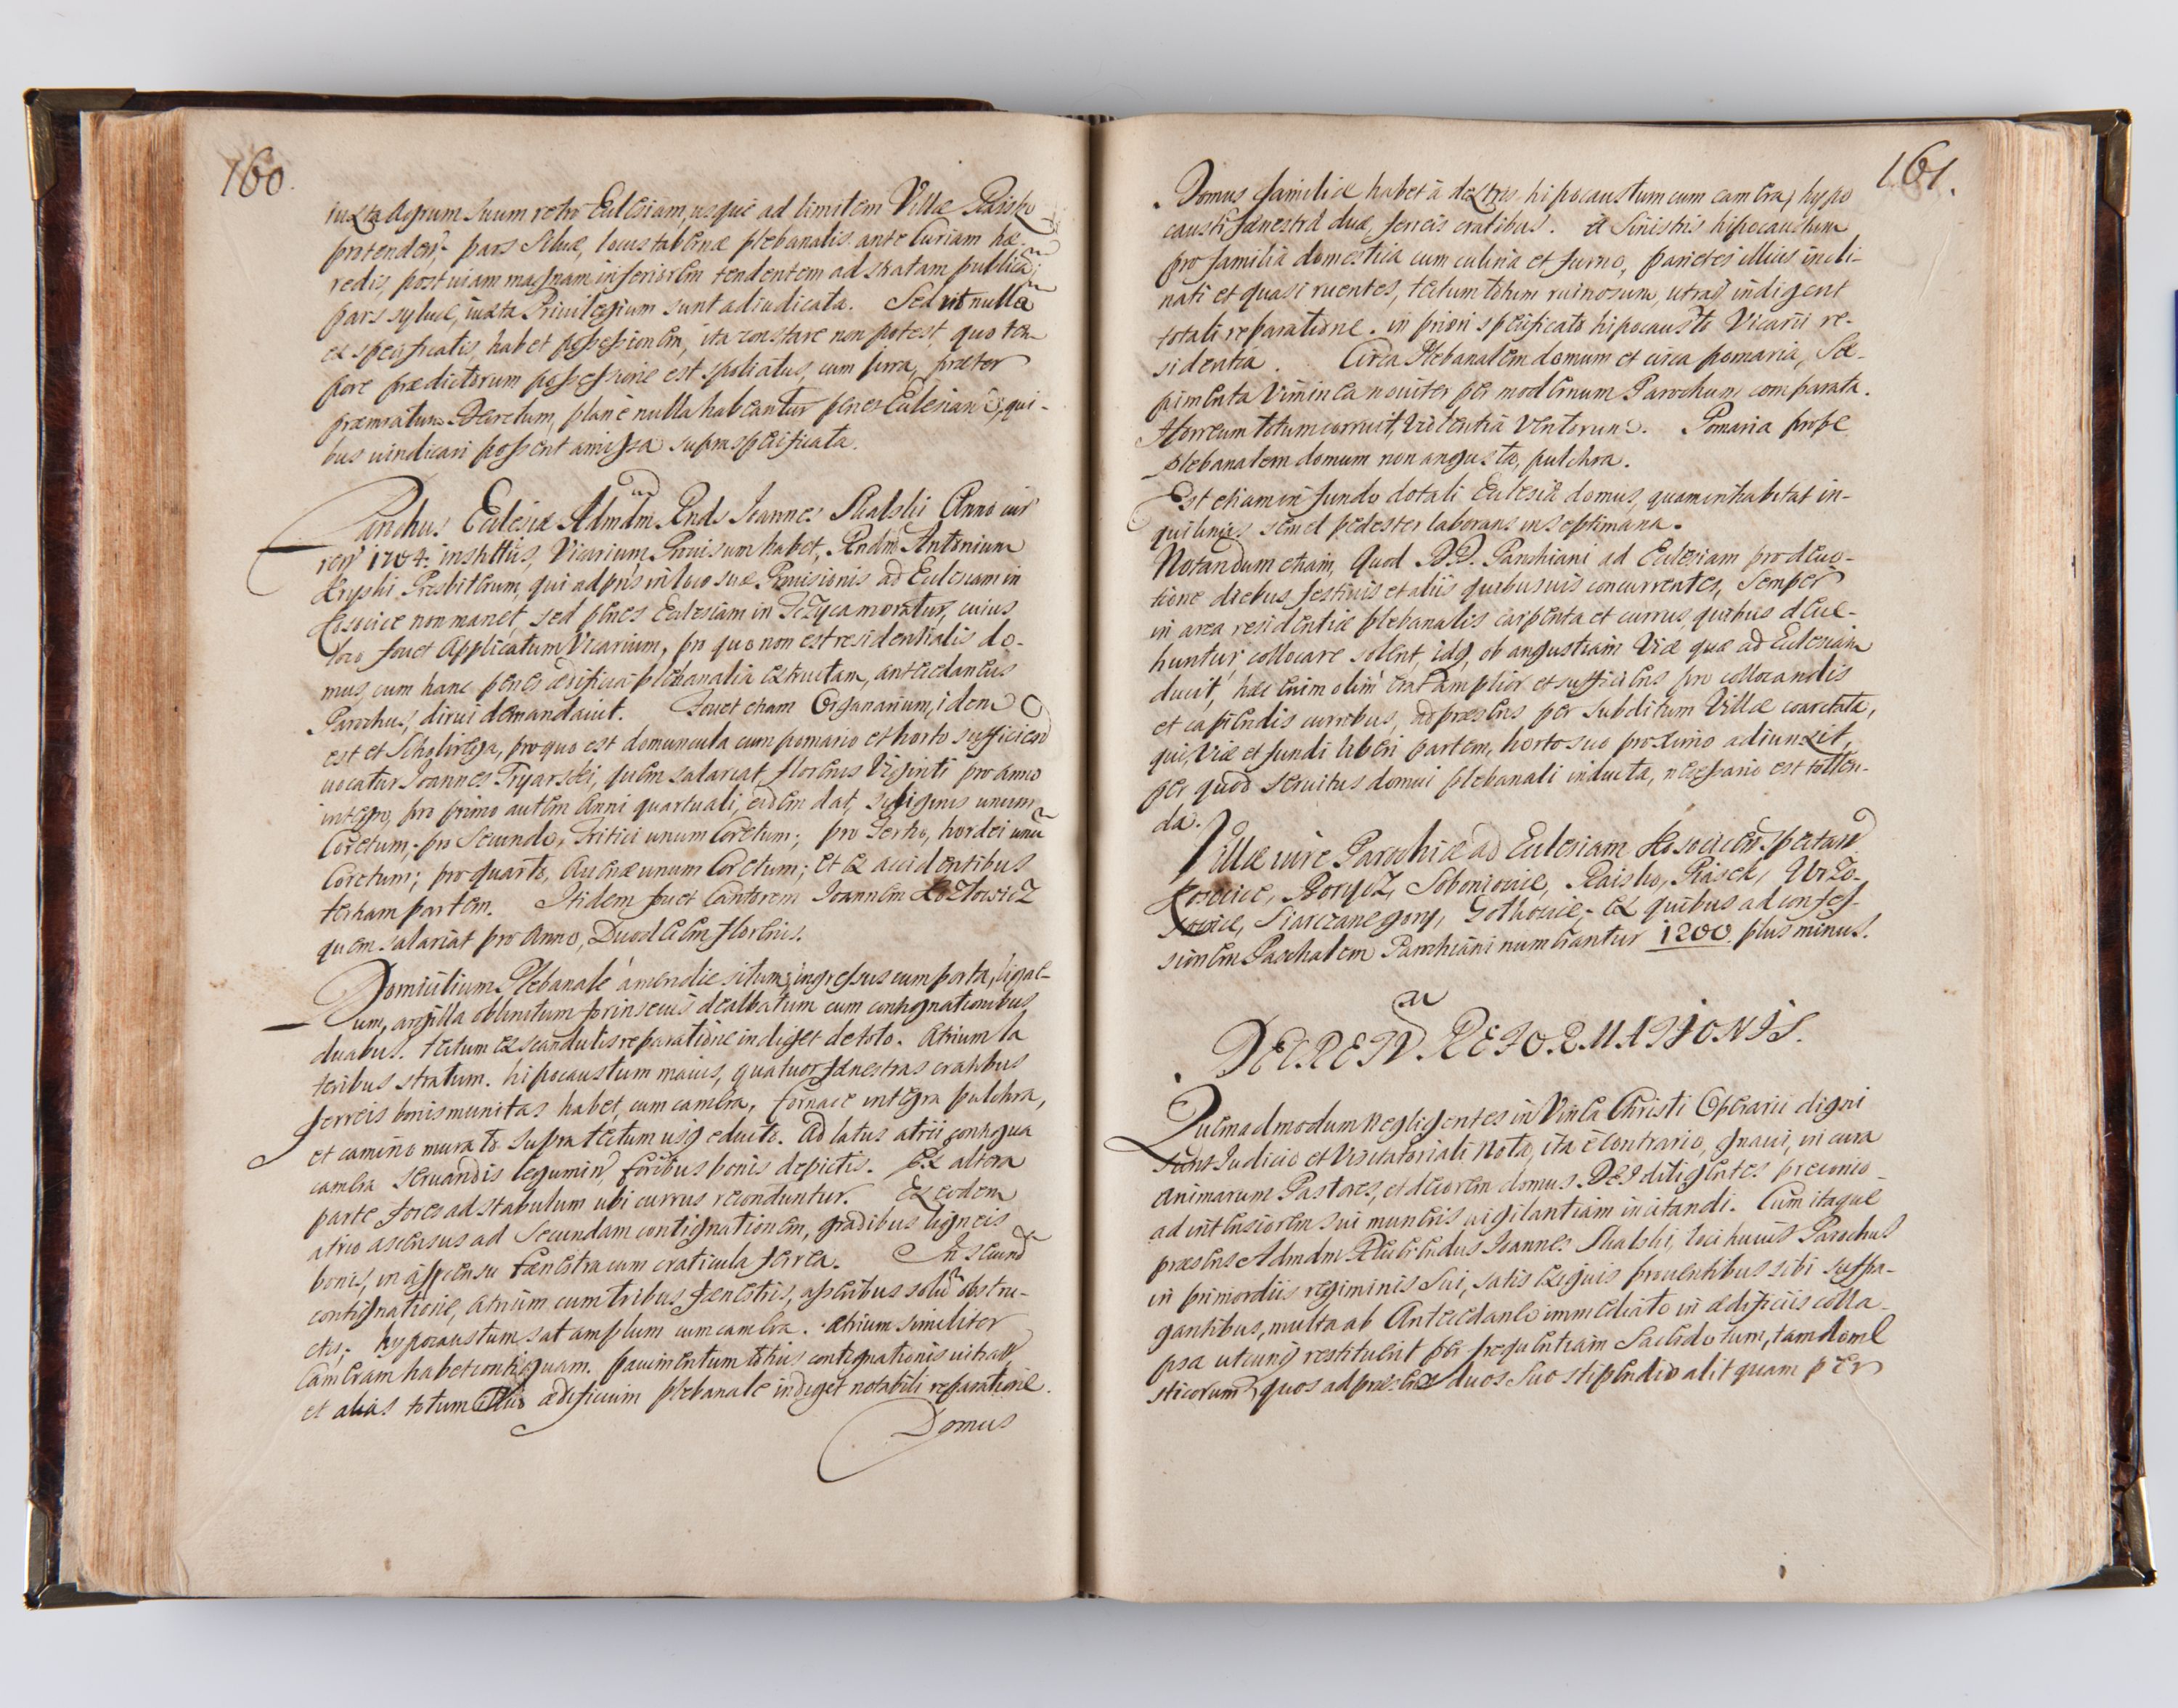 160.
iuxta agrum suum retro Eclesiam, usque ad limitem Villæ Raisko
protenden; pars Siluæ, locus tabernæ plebanalis ante Curiam hæ-
redis, post uiam magnam inferiorem tendentem ad stratam publicã;
pars syluæ, iuxta Priuilegium sunt adiudicata. Sed ut nullã
ex specificatis, habet possessionem, ita constare non potest, quo tem
pore prædictorum possessione est spoliatus, cum jurra, præter
præmiatum Decretum, plane nulla habeantur penes Eclesiam, qui-
bus uindicari possent amissa supraspecificata.
Parochus Eclesiæ Admdm Rnds Ioannes Skalski Anno cur
ren 1704. institutus, Vicarium Prouisum habet, Rndm Antonium
Krypski Presbiterum, qui ad pns in loco suæ Prouisionis ad Eclesiam in
Kosocice non manet, sed penes Eclesiam in moratur, cuius
loco fouet Applicatum Vicarium, pro quo non est residentialis do-
mus, cum hanc penes ædificia plebanalia extructam, antecedaneus
Parochus, dirui demandauit. Fouet etiam Organarium, idem
est et Scholirega, pro quo est domuncula cum pomario et horto sufficien
uocatur Ioannes Pryarski, quem salariat florenis Viginti pro anno
integro, pro primo autem Anni quartuali, eidem dat, syliginis unum
Coretum; pro Secundo, Tritici unum Coretum; pro Tertio, hordei unũ
Coretum; pro quarto, Auenæ unum Coretum; et ex accidentibus
tertiam partem. Itidem fouet Cantorem Ioannem Kozłowicz
quem salariat pro Anno, Duodecem florenis.
Domicilium Plebanale a meridie situm, ingressus cum porta, ligne-
um, argilla oblinitum forinsecus dealbatum cum contignationibus
duabus. tectum ex scandulis reparatione indiget de toto. Atrium la
teribus stratum. hipocaustum maius, quatuor fænestras cratibus
ferreis bonis munitas habet, cum cambra, fornace integra pulchra,
et camino murato supra tectum usq educto. Ad latus atrii contigua
cambra seruandis legumin, foribus bonis depictis. Ex altera
parte fores ad stabulum ubi currus reconduntur. Ex eodem
atrio ascensus ad Secundam contignationem, gradibus ligneis
bonis, in ascensu fænestra cum craticula ferrea. In secund
contignatione, atrium cum tribus fænestris, asseribus solũ obstru-
ctis; hypocaustum sat amplum cum cambra. atrium similiter
Cambram habet contiguam. pauimentum totius contignationis uitiat
et alias totum illud ædificium plebanale indiget notabili reparatione.
Domus
161.
Domus familiæ habet à dextris hipocaustum cum cambra, hypo
causti fænestræ duæ, ferreis cratibus. à Sinistris hipocaustum
pro familia domestica cum culina et furno, parietes illius incli-
nati et quasi ruentes, tectum totum ruinosum, utraq indigent
totali reparatione. in priori specificato hipocausto Vicarii re-
sidentia. Circa Plebanalem domum et circa pomaria, Sæ-
pimenta Viminea nouiter per modernum Parochum comparata.
Horreum totum corruit, Violentia Ventorum. Pomaria prope
plebanalem domum non angusta, pulchra.
Est etiam in fundo dotali Eclesiæ domus, quam inhabitat in-
quilinus semel pedester laborans in septimana.
Notandum etiam, Quod D.D. Parochiani ad Eclesiam pro deuo-
tione diebus festiuis et aliis quibusuis concurrentes, Semper
in area residentiæ plebanalis carpenta et currus quibus deue-
huntur, collocare solent, idq, ob angustiam Viæ quæ ad Eclesiam
ducit, hæc enim olim erat amplior et sufficiens pro collocandis
et capiendis curribus, ad præsens per Subditum Villæ coarctata,
qui, Viæ et fundi liberi partem, horto suo proximo adiunxit,
per quod seruitus domui plebanali inducta, necessario est tollen-
da.
Villæ iure Parochiæ ad Eclesiam Kosocicen spectan
Kosocice, Soboniowice, Raisko, Piasek, Wrzo-
sowice, Siarczanegory, Gołkowice; ex quibus ad confes-
sionem Paschalem Parochiani numerantur 1200. plus minus.
DECRETŨ REFORMATIONIS.
Quemadmodum Negligentes in Vinea Christi Operarii digni
sunt Iudicio et Visitatoriali Nota, ita è contrario, gnaui, in cura
animarum Pastores, et decorem domus DEI diligentes preconio
ad intensiorem sui muneris uigilantiam incitandi. Cum itaque
præsens Admdm Reuerendus Ioannes Skalski, loci huius Parochus
in primordiis regiminis sui, satis exiguis prouentibus sibi suffra-
gantibus, multa ab Antecedaneo immediato in ædificiis colla-
psa utcunq restituerit per frequentiam Sacerdotum, tam dome
sticorum, quos ad præsens duos suo stipendio alit quam per